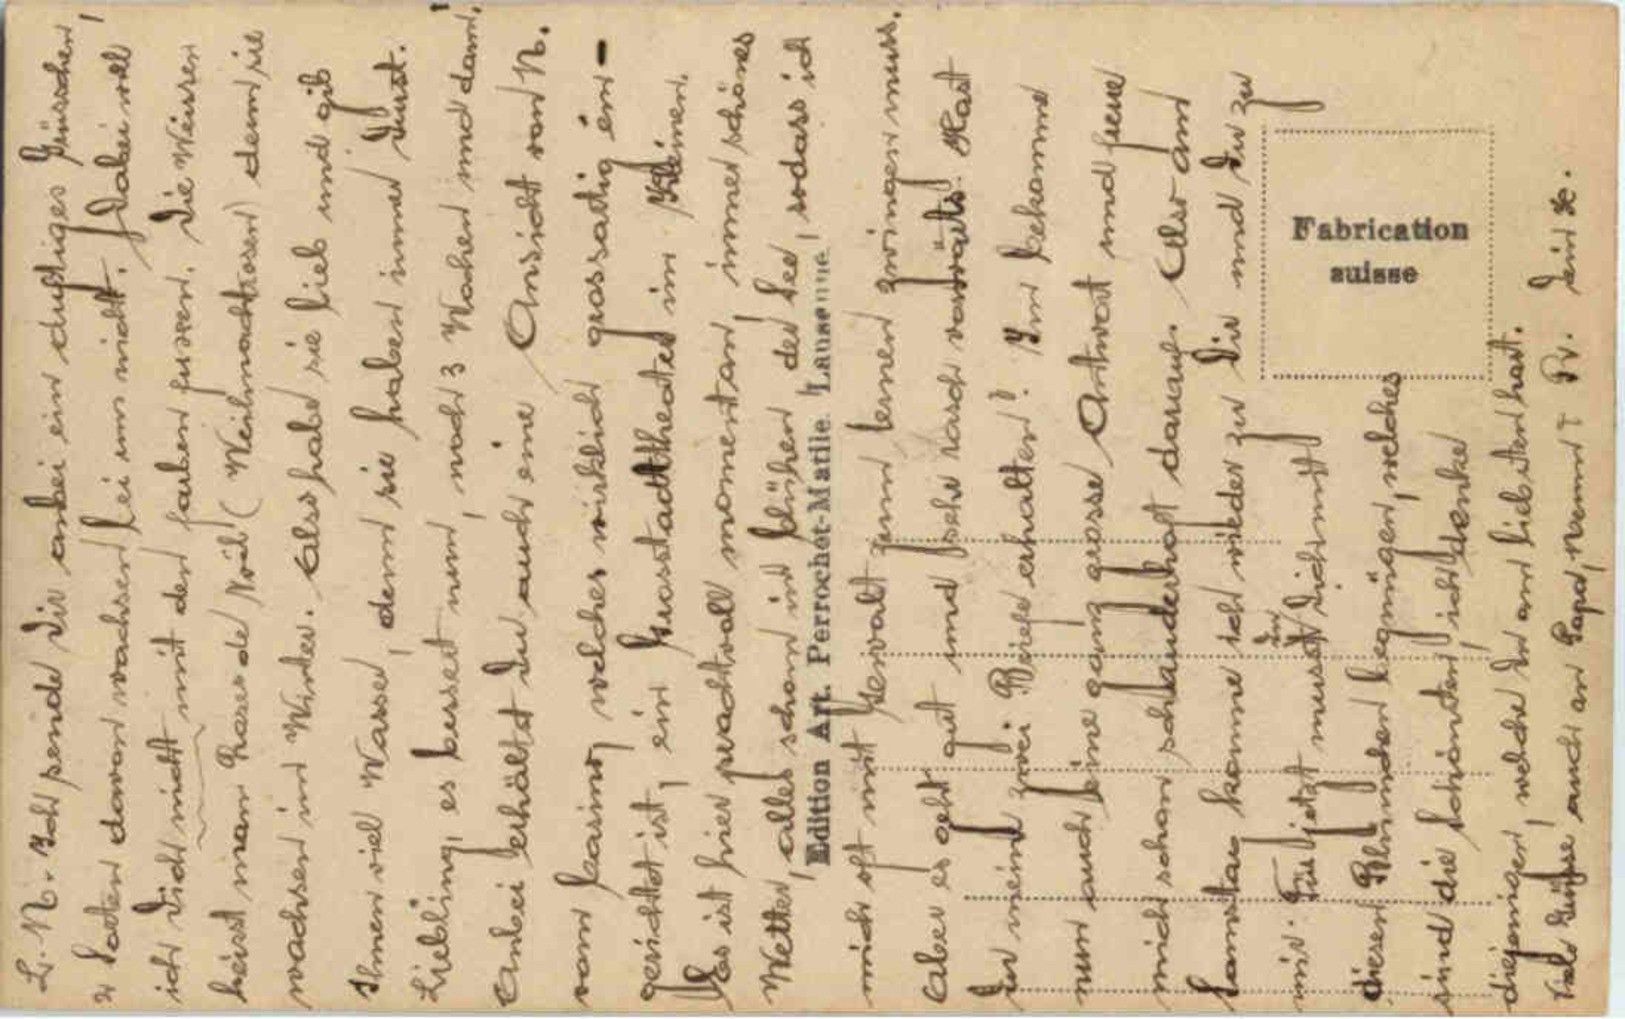 L. N. Ich sende Dir anbei ein duftiges Grüsschen,
2 Sorten davon wachsen bei uns nicht. Dabei will
ich Dich nicht mit den farben fuxen. Die Weissen
heisst man Roses de Noël (Weihnachtsrosen) denn sie
wachsen im Winter. Also habe sie lieb und gib
Ihnen viel Wasser, denn sie haben immer Durst.
Liebling, es bessert nun, noch 3 Wochen und dann!
Anbei erhältst Du auch eine Ansicht von N.
vom Casino, welches wirklich grossartig ein-
gerichtet ist, ein Grosstadttheater im Kleinen.
Es ist hier prachtvoll momentan, immer schönes
Wetter, alles schon im blühen, der See, sodass ich
mich oft mit Gewalt zum lernen zwingen muss.
Aber es geht gut und sehr rasch vorwärts. Hast
Du meine zwei Briefe erhalten? Ich bekomme
nun auch eine ganz grosse Antwort und freue
mich schon schauderhaft darauf. Also am
Samstag komme ich wieder zu Dir und Du zu
mir. Für jetzt musst Du Dich mit
diesen Blumen begnügen, welches
sind die schönsten, ich denke
diejenigen, welche Du am liebsten hast.
Viele Grüsse auch an Papa, Dein H.
Edition Art. Perrochet-Matile, Lausanne
Fabrication
suisse